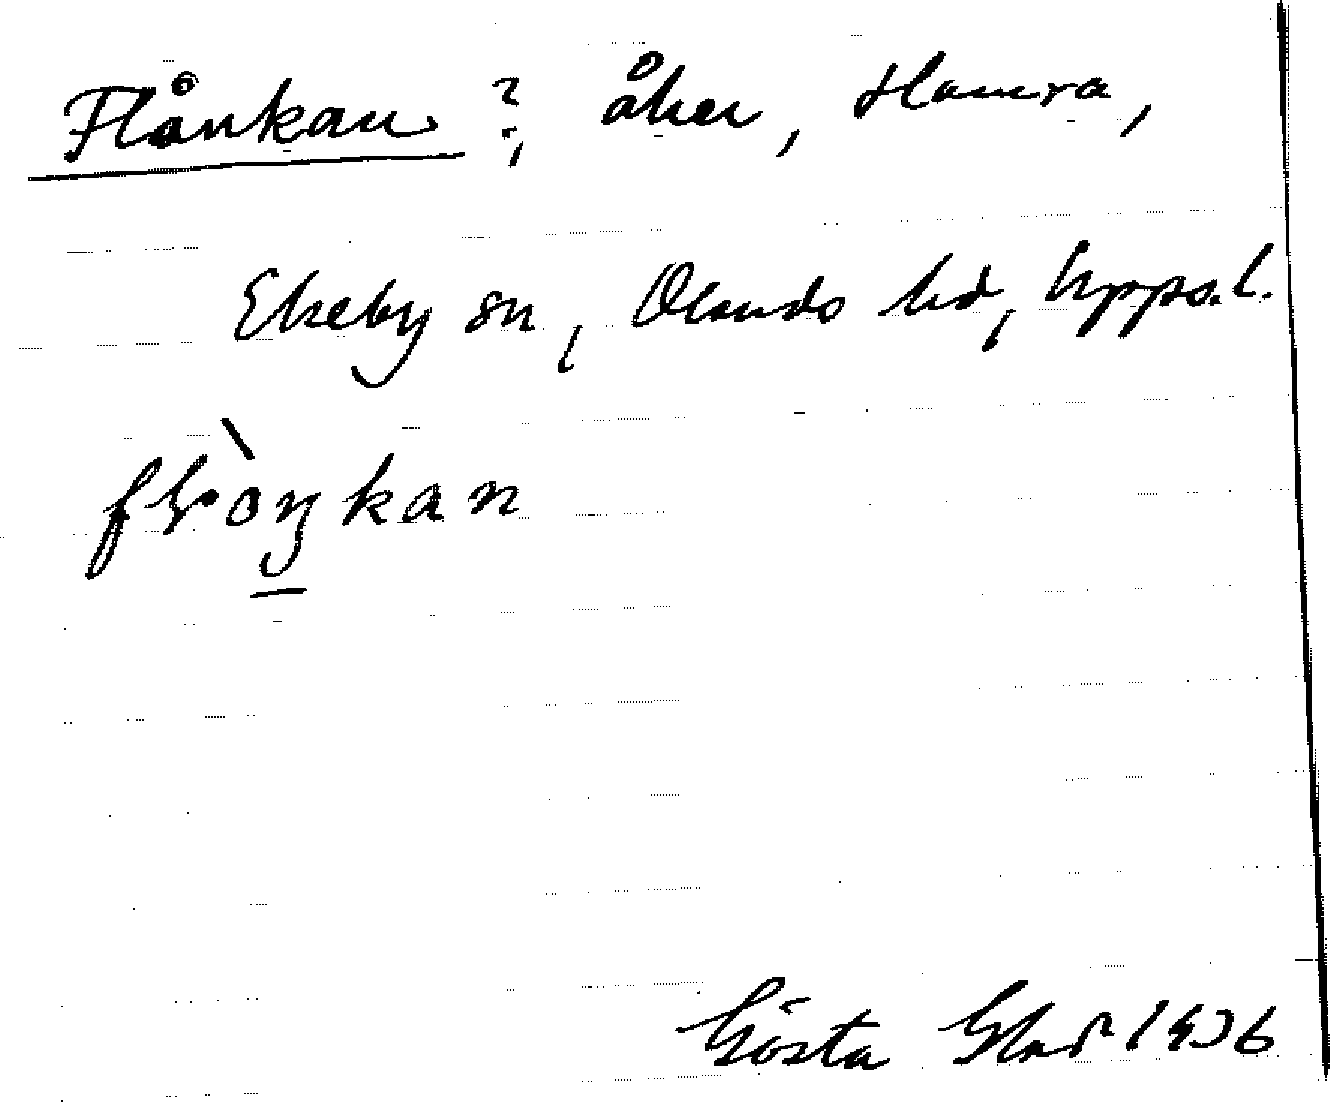 Flånkan?, åker, Hamra,
Ekeby sn, Olands hd, Upps.l.
Gösta 1936